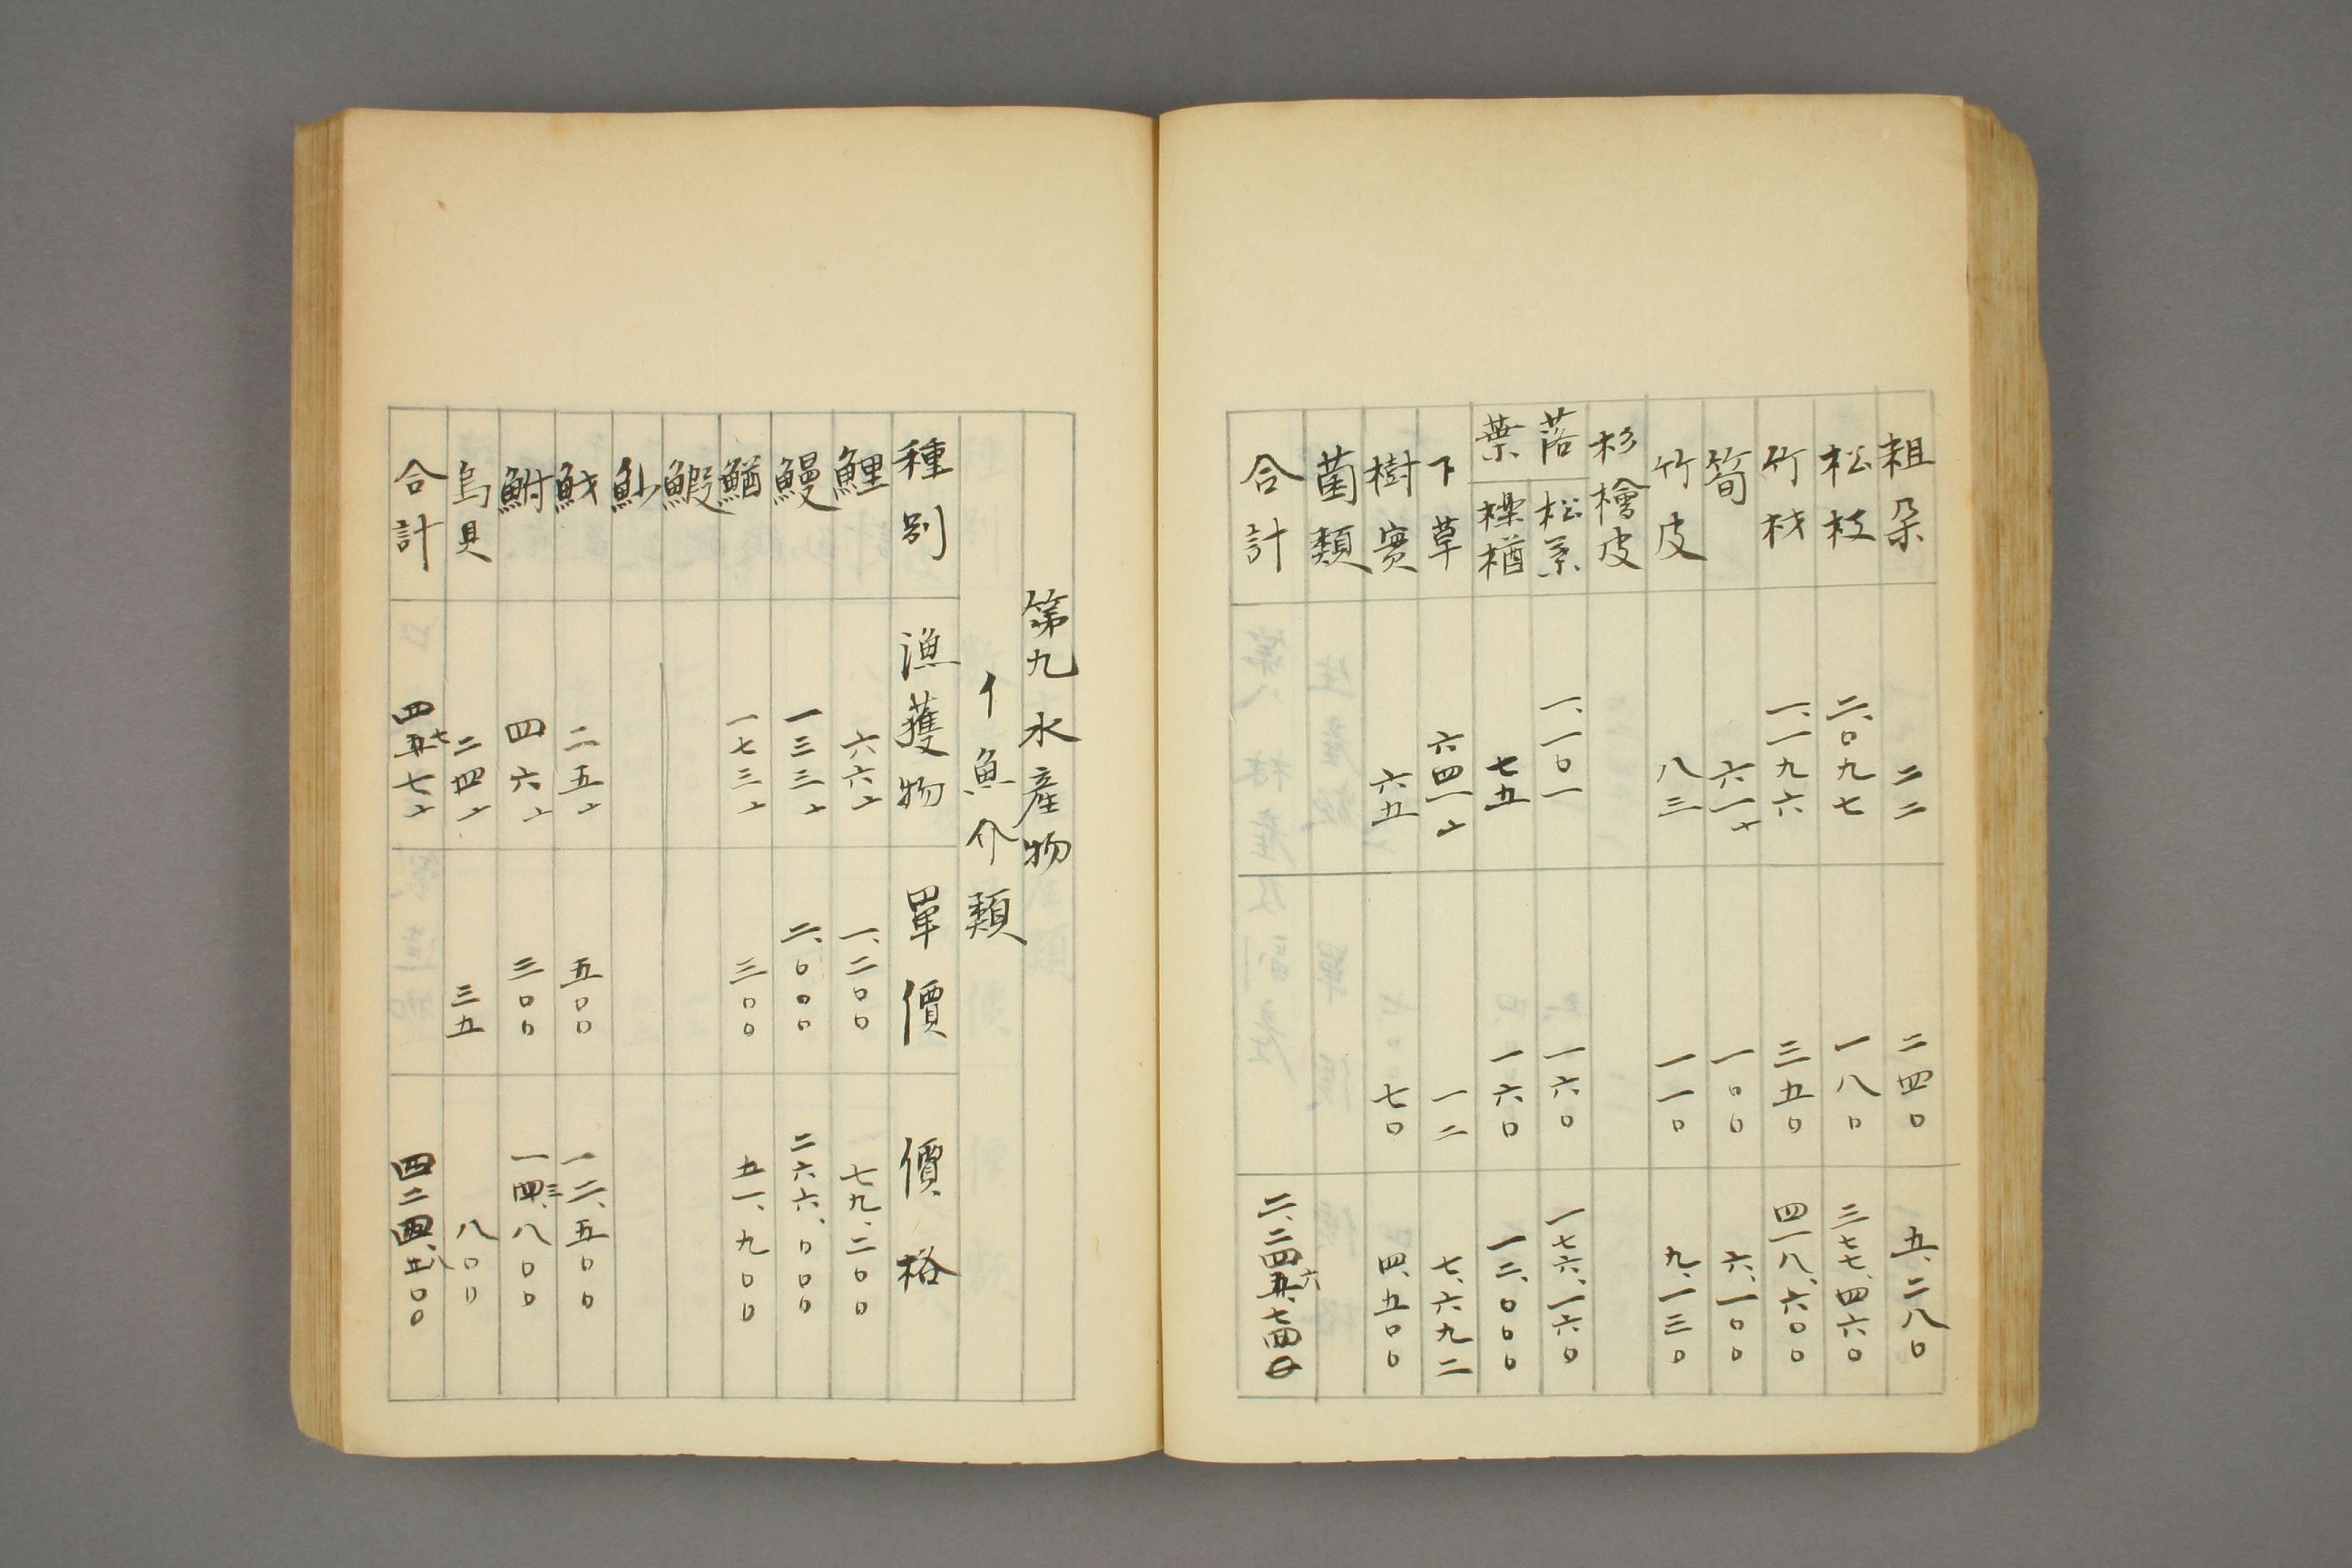 粗朶 二二 二四〇 五、二八〇
松枝 二、〇九七 一八〇 三七七、四六〇
竹材 一、一九六 三五〇 四一八、六〇〇
筍 六一 一〇〇 六、一〇〇
竹皮 八三 一一〇 九、一三〇
杉檜皮
落葉 松葉 一、一〇一 一六〇 一七六、一六〇
檪楢 七五 一六〇 一二、〇〇〇
下草 六四一 一二 七、六九二
樹實 六五 七〇 四、五〇〇
菌類
合計
第九 水産物
イ 魚介類
種別 漁獲物 單價 價格
鯉 六六 一、二〇〇 七九、二〇〇
鰻 一三三 二、〇〇〇 二六六、〇〇〇
鰌 一七三 三〇〇 五一、九〇〇
鰕
魦
二五 五〇〇 一二、五〇〇
鮒 四六 三〇〇
烏貝 二四 三五 八〇〇
合計